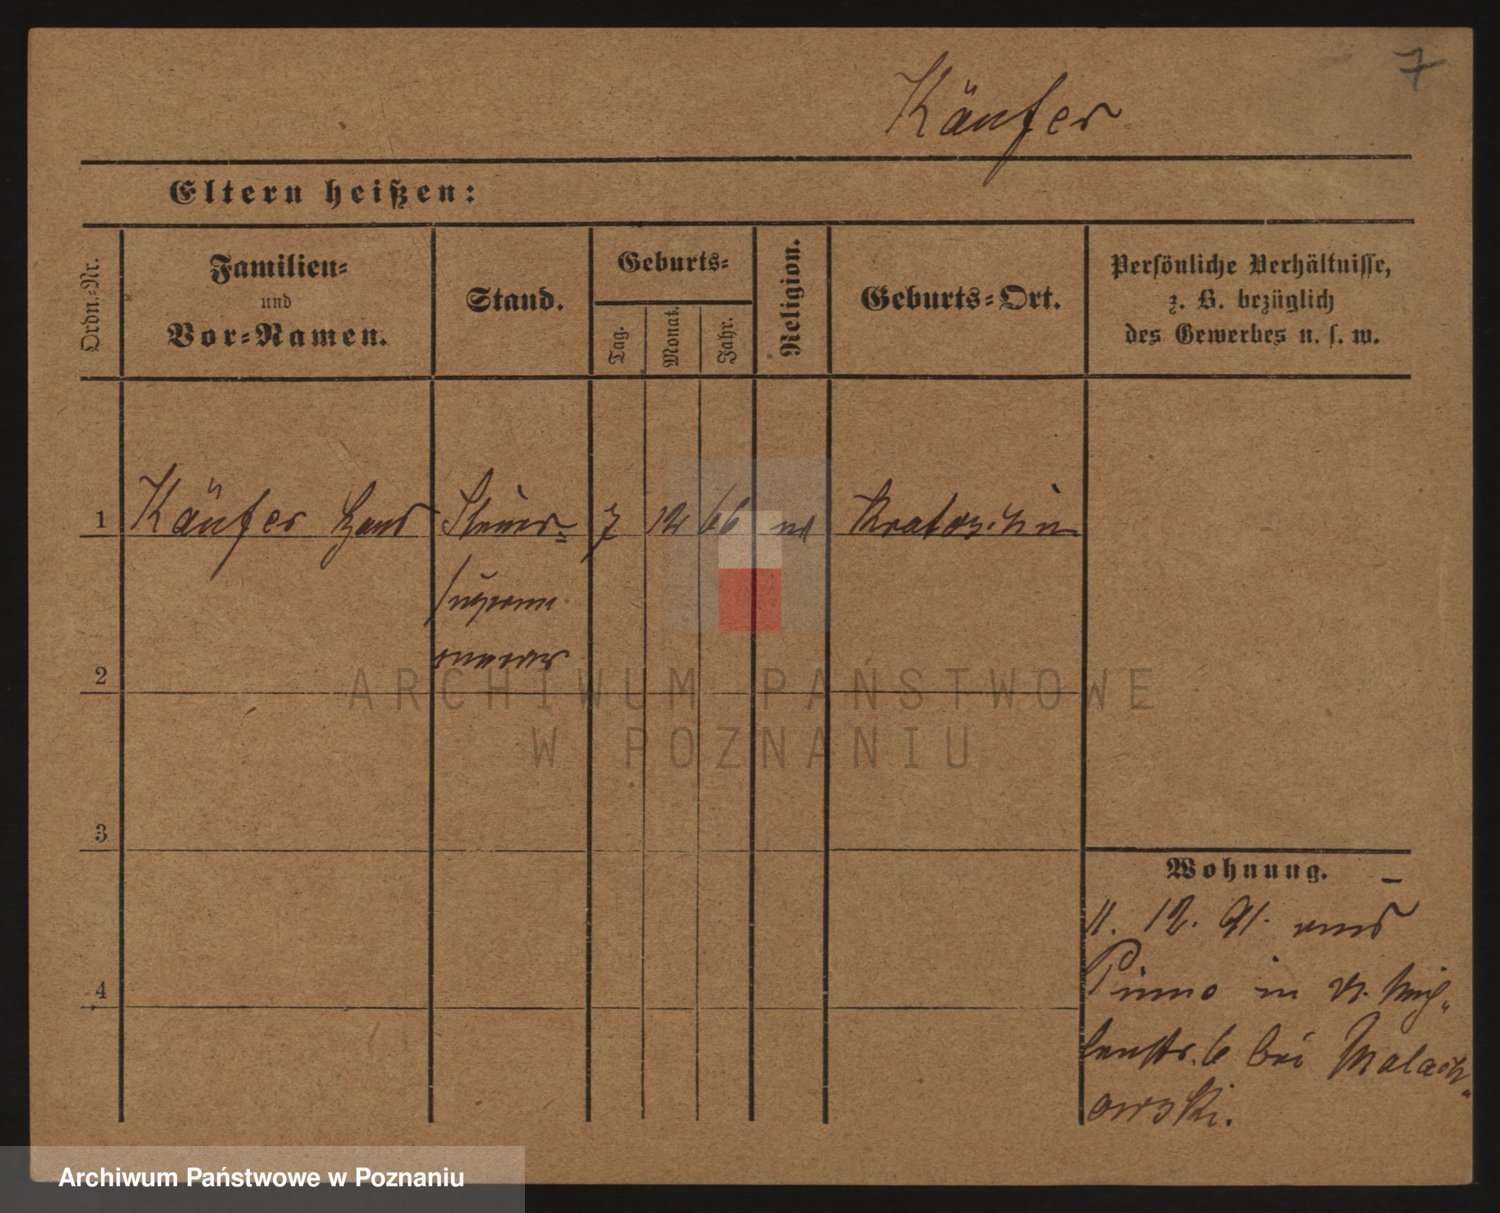 7
Käufer
Eltern heißen:
Ordn.-Nr.
Familien-
und
Vor-Namen.
Stand.
Geburts-
Tag.
Monat.
Jahr.
Religion.
Geburts-Ort.
Persönliche Verhältnisse,
z. B. bezüglich
des Gewerbes u. s. w.
1 Käufer Hans Steuer- 7 12 66 Krotoschin
supernu
merar
2
3
4
Wohnung.
11. 12. 91. aus
Pinne in Müh-
lenstr. 6 bei Malach-
owski.
ARCHIWUM PAŃSTWOWE
W POZNANIU
Archiwum Państwowe w Poznaniu